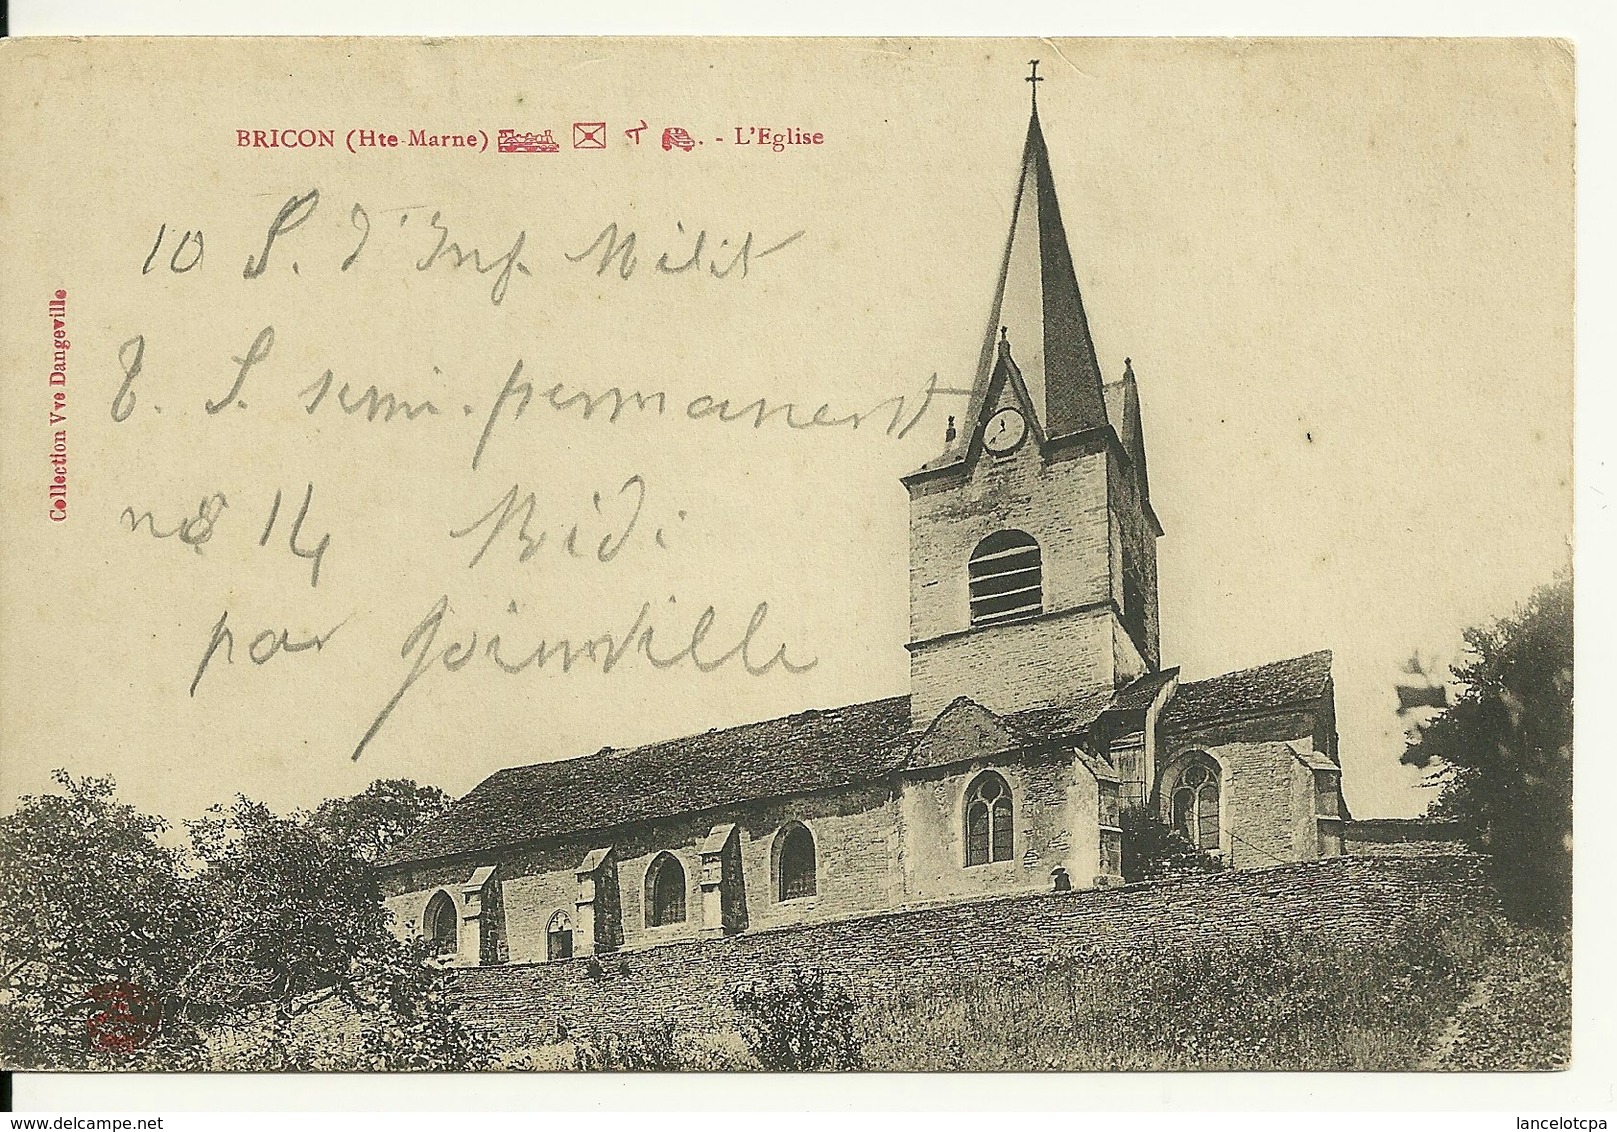 BRICON (Hte-Marne) . - L'Eglise
Collection Vve Dangeville
10 S. d'Inf. Milit
T. S. semi-permanent
no 14 Midi
par Joinville
delcampe.net
lancelotcpa